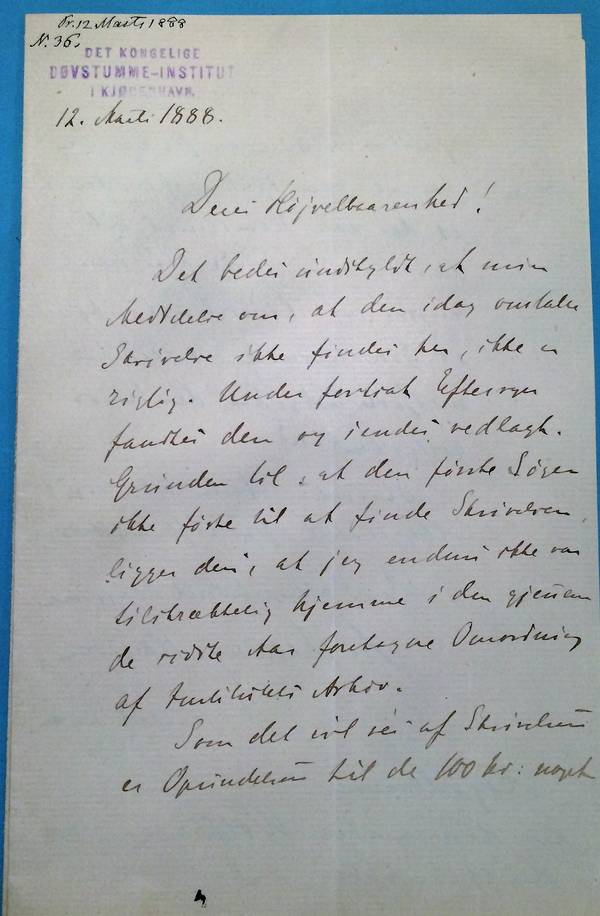 Pr. 12 Marts 1888
N. 36.
DET KONGELIGE
DØVSTUMME-INSTITUT
I KJØBENHAVN.
12. Marts 1888.
Deres Højvelbaarenhed!
Det bedes undskyldt, at min
Meddelelse om, at den idag omtalte
Skrivelse ikke findes her, ikke er
rigtig. Under fortsat Eftersøgen
fandtes den og sendes vedlagt.
Grunden til, at den første Søgen
ikke førte til at finde Skrivelsen,
ligger deri, at jeg endnu ikke var
tilstrækkelig hjemme i den gjennem
de sidste Aar foretagne Omordning
af Instituttets Arkiv.
Som det vil ses af Skrivelsen
er Oprindelsen til de 100 Kr: noget